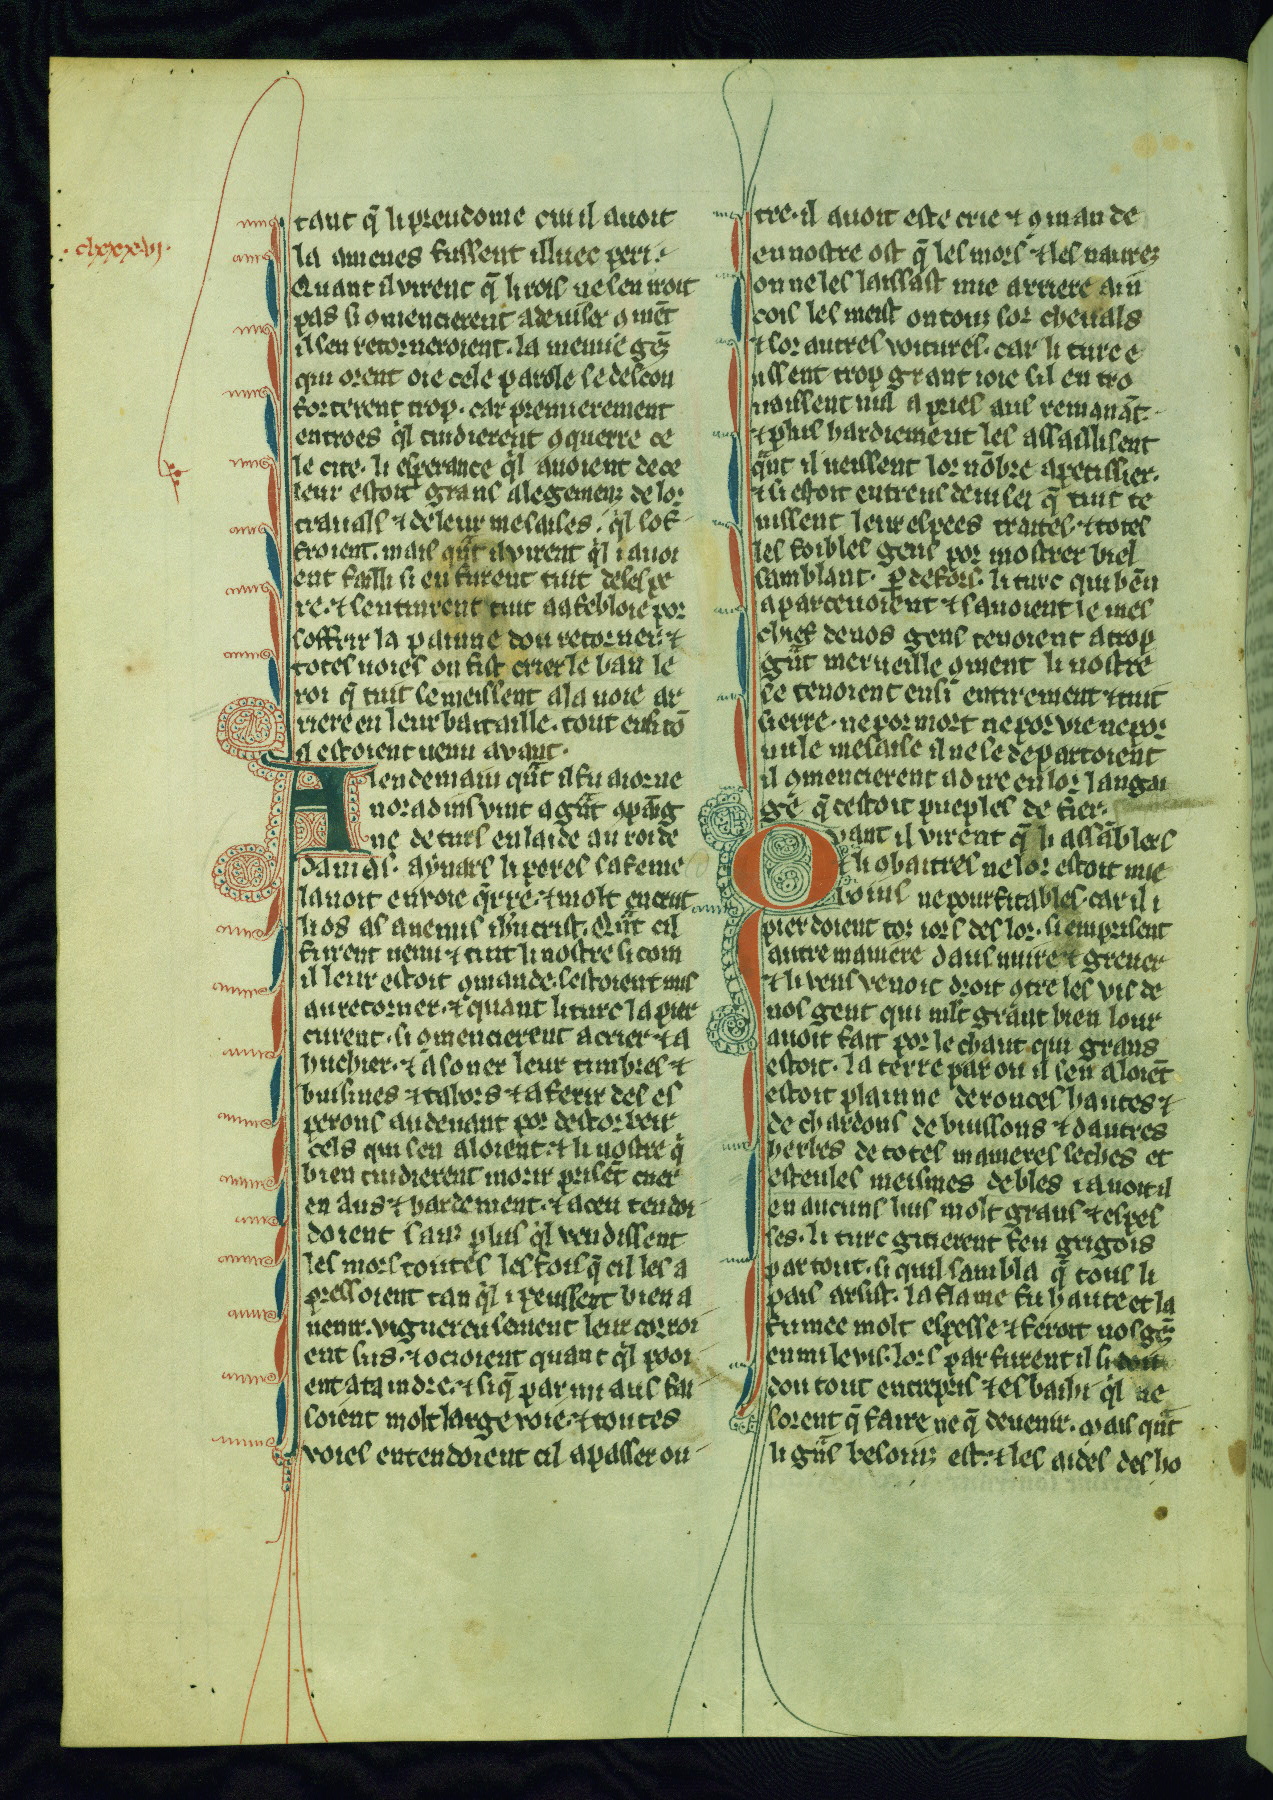 .clxxxvi.
tant q̃ li preudome cui il auoit
la amenes fussent illuec peri.
Quant il virent q̃ li rois ne sen iroit
pas si ꝯmencierent a deuiser ꝯmẽt
il sen retorneroient. la menue gẽs
qui orent oie cele parole se descon
forterent trop. car premierement
entroes q̃l cuidierent ꝯquerre ce
le cite. li esperance q̃l auoient de ce
leur estoit grans alegemenz de lor
trauals ⁊ de leur mesaises. q̃l sof
froient. mais q̃nt il virent q̃l i auoi
ent failli si en furent tuit desespe
re. ⁊ sen tinrent tuit a afebloie por
soffrir la painne dou retorner. ⁊
totes uoies on fist crier le ban le
roi q̃ tuit se meissent a la uoie ar
riere en leur battaille. tout ensi cõ
il estoient uenu auant.
A lendemain q̃nt il fu aiorne
noradins vint a g̃nt ꝯpaig
nie de turs en laide au roi de
damas. aynars li peres sa feme
lauoit enuoie q̃rre. ⁊ molt encrut
li os as anemis ihũcrist. Q̃nt cil
furent uenu ⁊ tuit li nostre si com
il leur estoit ꝯmande. sestoient mis
au retorner. ⁊ quant li turc la per
curent. si ꝯmencierent a crier ⁊ a
huchier. ⁊ a soner leur timbres ⁊
buisines ⁊ tabors ⁊ a ferir des es
perons au deuant por destorbeir
cels qui sen aloient. ⁊ li nostre q̃
bien cuidierent morir prisẽt cuer
en aus ⁊ hardement. ⁊ a ceu tendoi
doient sanz plus q̃l vendissent
les mors toutes les fois q̃ cil les a
pressoient tan q̃l i peussent bien a
uenir. viguereusement leur corroi
ent sus. ⁊ ocioient quant q̃l pooi
ent ataindre. ⁊ si q̃ par mi aus fai
soient molt large voie. ⁊ toutes
voies entendoient cil a passer ou
tre. il auoit este crie ⁊ ꝯmande
en nostre ost q̃ les mors ⁊ les naurez
on ne les laissast mie arriere ain
cois les meist on touz sor cheuals
⁊ sor autres voitures. car li turc e
ussent trop grant ioie sil en tro
uaissent nul apries aus remanãt.
⁊ plus hardiement les assaillisent
q̃nt il ueissent lor nõbre apetissier.
⁊ si estoit entreus deuisei q̃ tuit te
nissent leur espees traites. ⁊ totes
les foibles gens por mostrer biel
samblant. ꝑ defors. li turc qui bẽn
aparceuoient ⁊ sauoient le mes
chief de nos gens tenoient a trop
g̃nt merueille ꝯment li nostre
se tenoient ensi entirement ⁊ tuit
sierre. ne por mort ne por vie ne por
nule mesaise il ne se departoient
il ꝯmencierent a dire en lor langai
ge q̃ cestoit pueples de fier.
Quant il virent q̃ li assãblers
⁊ li ꝯbaitres ne lor estoit mie
boins ne pourfitables. car il i
pierdoient toz iors des lor. si emprisent
autre maniere daus nuire ⁊ greuer
⁊ li vens venoit droit ꝯtre les vis de
nos gent qui mlt grant bien lour
auoit fait por le chaut qui grans
estoit. la terre par ou il sen aloiẽt
estoit plainne de ronces hautes ⁊
de chardons de buissons ⁊ dautres
herbes de totes manieres seches et
esteules meismes de bles i auoit il
en aucuns lius molt grans ⁊ espes
ses. li turc gitierent feu grigois
par tout. si quil sambla q̃ tous li
pais arsist. la flame fu haute et la
fumee molt espesse ⁊ feroit nos gẽs
en mi le vis. lors par furent il si
dou tout entrepris ⁊ esbaihi q̃l ne
sorent q̃ faire ne q̃ deuenir. mais q̃nt
li g̃ns besoinz est. ⁊ les aides des ho